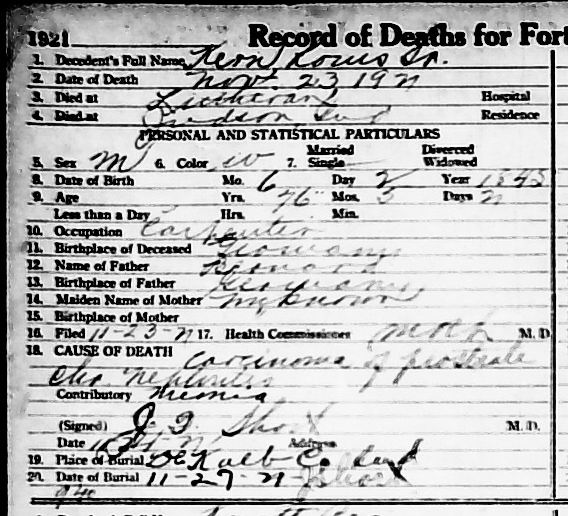 1921 Record of Deaths for Fort
1. Decedent's Full Name Kern Louis Sr.
2. Date of Death Nov. 23 1921
3. Died at Lutheran Hospital
4. Died at Ind Residence
PERSONAL AND STATISTICAL PARTICULARS
Married Divorced
5. Sex M 6. Color W 7. Single Widowed
8. Date of Birth Mo. 6 Day 2 Year 1845
9. Age Yrs. 76 Mos. 5 Days 21
Less than a Day Hrs. Min.
10. Occupation Carpenter
11. Birthplace of Deceased Germany
12. Name of Father
13. Birthplace of Father Germany
14. Maiden Name of Mother Unknown
15. Birthplace of Mother
16. Filed 11-23-21 17. Health Commissioner M. D.
18. CAUSE OF DEATH Carcinoma of prostrate
Chr. Nephritis
Contributory Uremia
(Signed) M. D.
Date Address
19. Place of Burial De Kalb C. Ind
20. Date of Burial 11-27-21